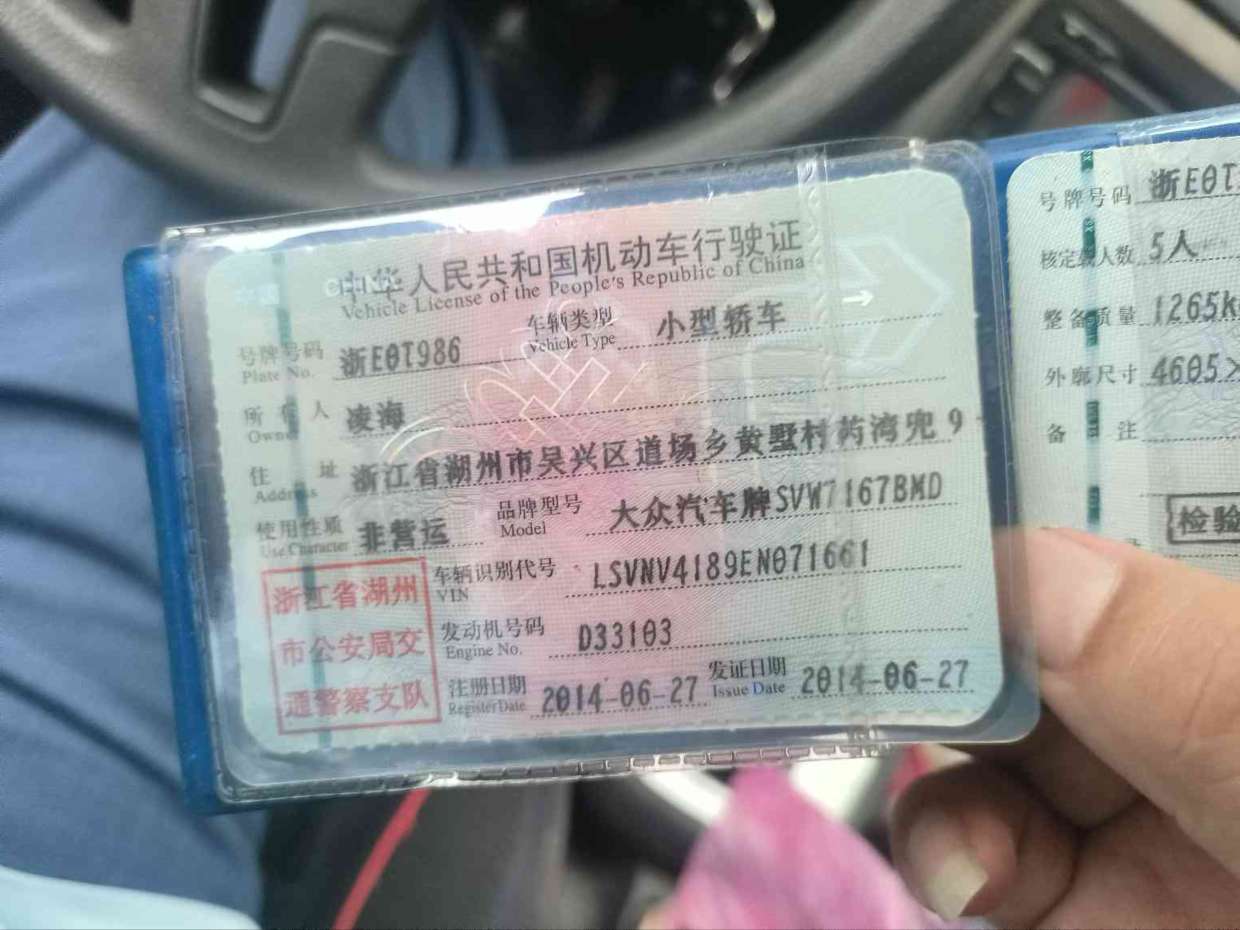 中华人民共和国机动车行驶证
Vehicle License of the People's Republic of China
号牌号码 浙E0T986 车辆类型 小型轿车
Plate No. Vehicle Type
所有人 凌海
Owner
住址 浙江省湖州市吴兴区道场乡黄墅村药湾兜9
Address
使用性质 非营运 品牌型号 大众汽车牌SVW7167BMD
Use Character Model
浙江省湖州
市公安局交
通警察支队
车辆识别代号 LSVNV4189EN071661
VIN
发动机号码 D33103
Engine No.
注册日期 2014-06-27 发证日期 2014-06-27
Register Date Issue Date
号牌号码 浙E0T
核定载人数 5人
整备质量 1265k
外廓尺寸 4605×
备注
检验